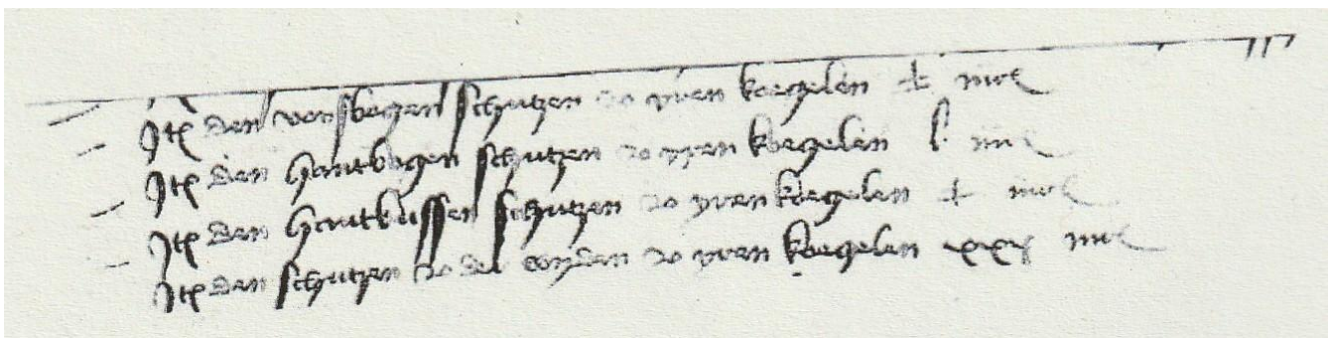 Itē den voeßbogen schutzen zo yren koegelen mrc
Itē den hantbogen schutzen zo yren koegelen l mrc
Itē den hantbussen schutzen zo yren koegelen mrc
Itē den schutzen zo der zo yren koegelen xxx mrc